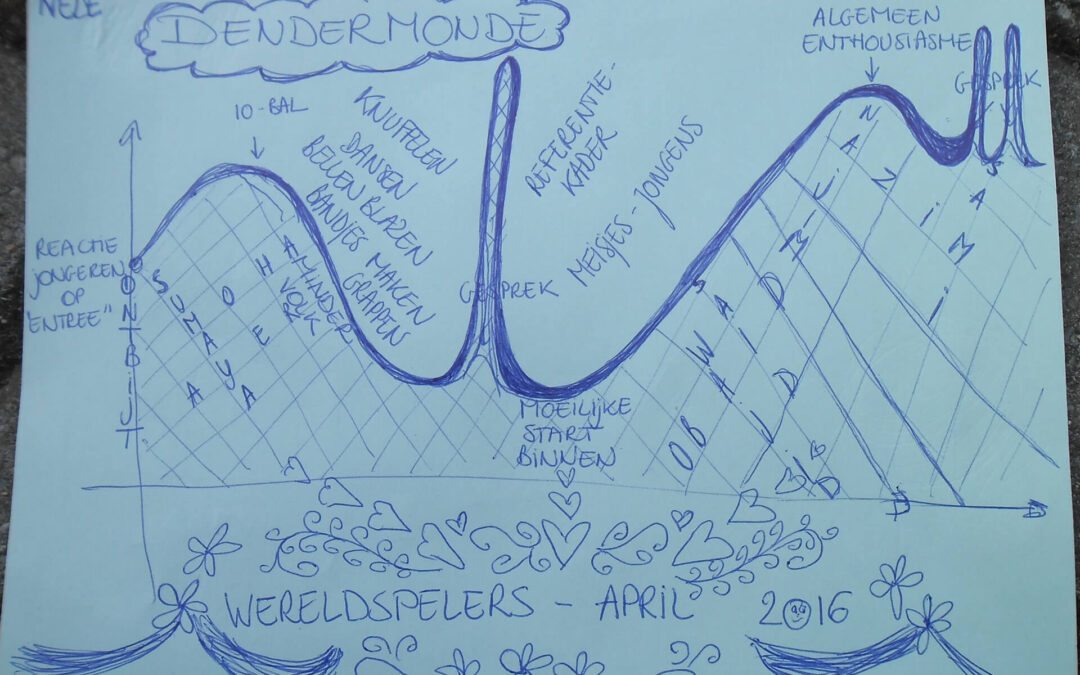 NELE
DENDERMONDE
ALGEMEEN
ENTHOUSIASME
GESPREK
10-BAL
KNUFFELEN
DANSEN
BELLEN BLAZEN
BANDJES MAKEN
GRAPPEN
REFERENTIE-
KADER
MEISJES - JONGENS
REACTIE
JONGEREN
OP
"ENTREE"
ONTBIJT
SUMAYA
MINDER
VOLK
GESPREK
MOEILIJKE
START
BINNEN
OBWAID
SAID
SAMI
WERELDSPELERS - APRIL 2016